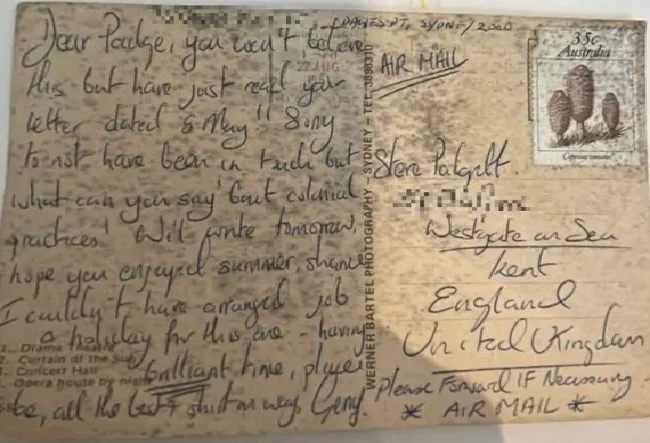 Dear Padge, you won't believe
this but have just read your
letter dated 5 May!! Sorry
to not have been in touch but
what can you say 'bout colonial
practices! Will write tomorrow,
hope you enjoyed summer, shame
I couldn't have arranged job
& holiday for this one - having
brilliant time,
be, all the best & shirt on way. Geng.
1. Drama Theatre
2. Curtain of the Sun
3. Concert Hall
4. Opera house by night
WERNER BARTEL PHOTOGRAPHY – SYDNEY – TEL. 3898310
SYDNEY 2000
27 AUG
AIR MAIL
35c
Australia
Steve Padgett.
Westgate on Sea
Kent
England
United Kingdom
Please Forward IF Necessary -
* AIR MAIL *